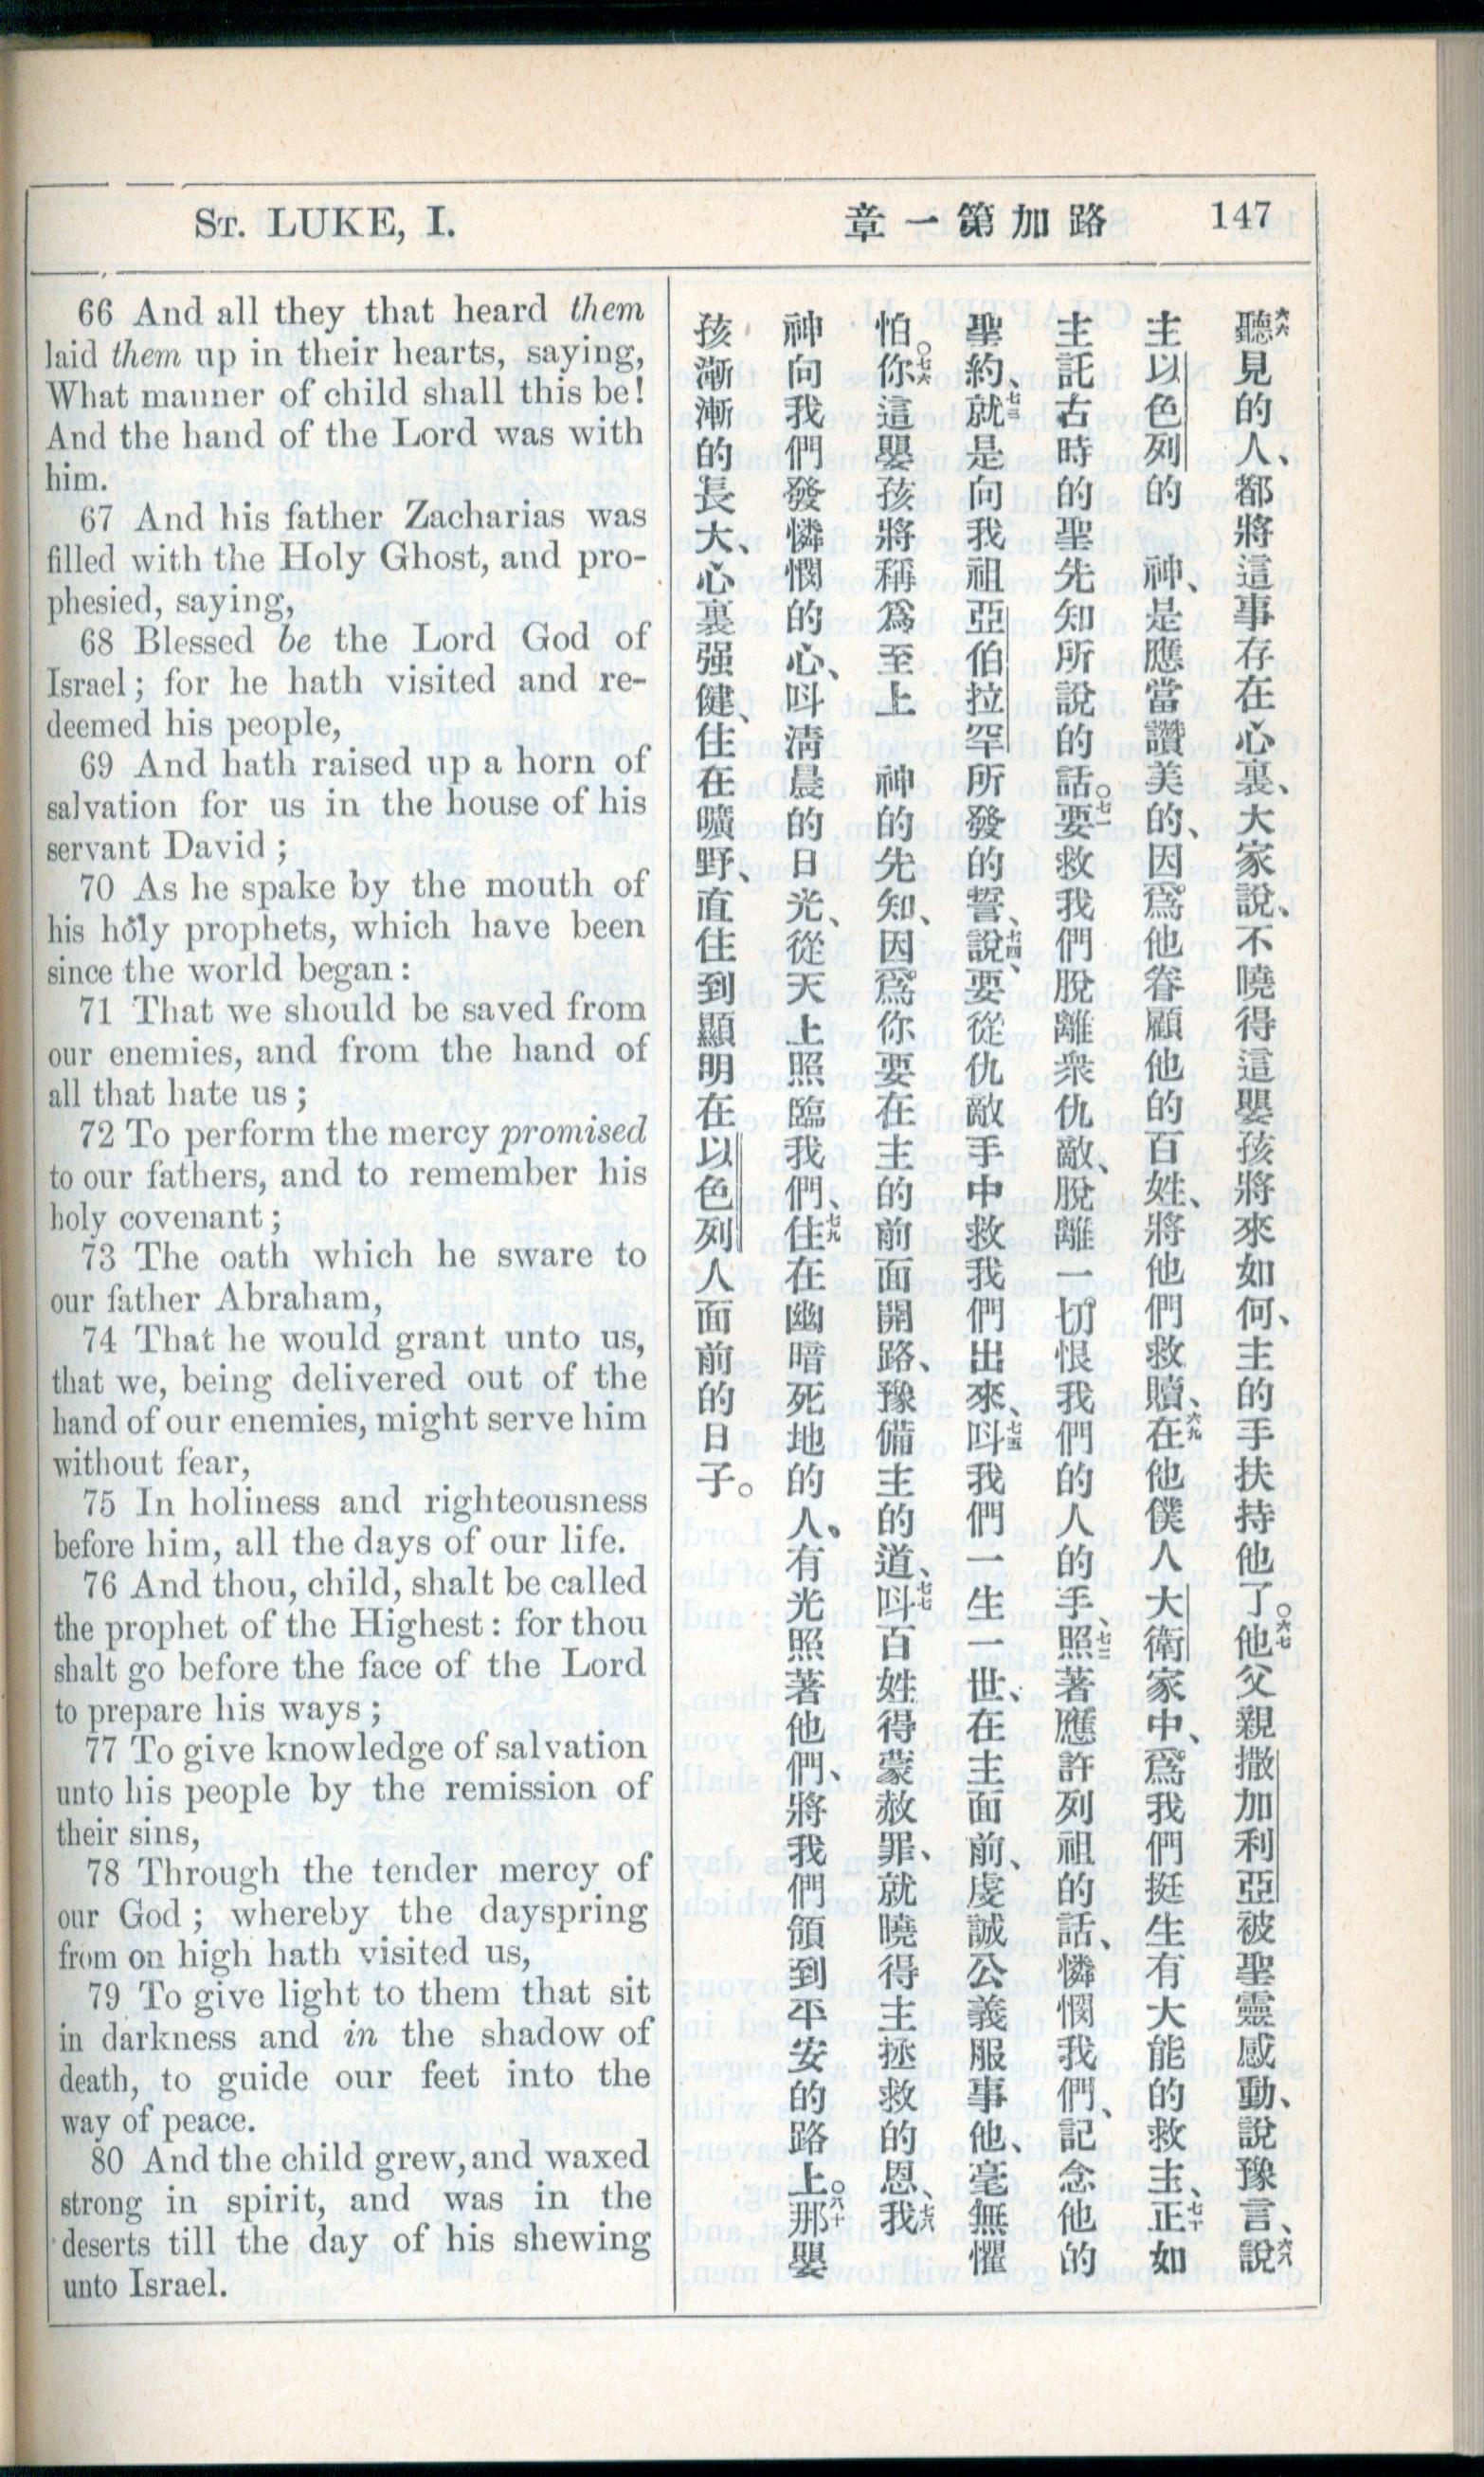 St. LUKE, I.
章一第加路
147
66 And all they that heard them
laid them up in their hearts, saying,
What manner of child shall this be!
And the hand of the Lord was with
him.
67 And his father Zacharias was
filled with the Holy Ghost, and pro-
phesied, saying,
68 Blessed be the Lord God of
Israel; for he hath visited and re-
deemed his people,
69 And hath raised up a horn of
salvation for us in the house of his
servant David;
70 As he spake by the mouth of
his holy prophets, which have been
since the world began:
71 That we should be saved from
our enemies, and from the hand of
all that hate us;
72 To perform the mercy promised
to our fathers, and to remember his
holy covenant;
73 The oath which he sware to
our father Abraham,
74 That he would grant unto us,
that we, being delivered out of the
hand of our enemies, might serve him
without fear,
75 In holiness and righteousness
before him, all the days of our life.
76 And thou, child, shalt be called
the prophet of the Highest: for thou
shalt go before the face of the Lord
to prepare his ways;
77 To give knowledge of salvation
unto his people by the remission of
their sins,
78 Through the tender mercy of
our God; whereby the dayspring
from on high hath visited us,
79 To give light to them that sit
in darkness and in the shadow of
death, to guide our feet into the
way of peace.
80 And the child grew, and waxed
strong in spirit, and was in the
deserts till the day of his shewing
unto Israel.
六六聽見的人、都將這事存在心裏、大家說、不曉得這嬰孩將來如何、主的手扶持他了。六七他父親撒加利亞被聖靈感動、說豫言、六八說
主以色列的 神、是應當讚美的、因爲他眷顧他的百姓、將他們救贖、六九在他僕人大衛家中、爲我們挺生有大能的救主、七十正如
主託古時的聖先知所說的話。七一要救我們脫離衆仇敵、脫離一切恨我們的人的手、七二照著應許列祖的話、憐憫我們、記念他的
聖約、七三就是向我祖亞伯拉罕所發的誓、七四說、要從仇敵手中救我們出來、七五呌我們一生一世、在主面前、虔誠公義服事他、毫無懼
怕。七六你這嬰孩將稱爲至上 神的先知、因爲你要在主的前面開路、豫備主的道、七七呌百姓得蒙赦罪、就曉得主拯救的恩、七八我
神向我們發憐憫的心、呌淸晨的日光、從天上照臨我們、七九住在幽暗死地的人、有光照著他們、將我們領到平安的路上。八十那嬰
孩漸漸的長大、心裏强健、住在曠野、直住到顯明在以色列人面前的日子。